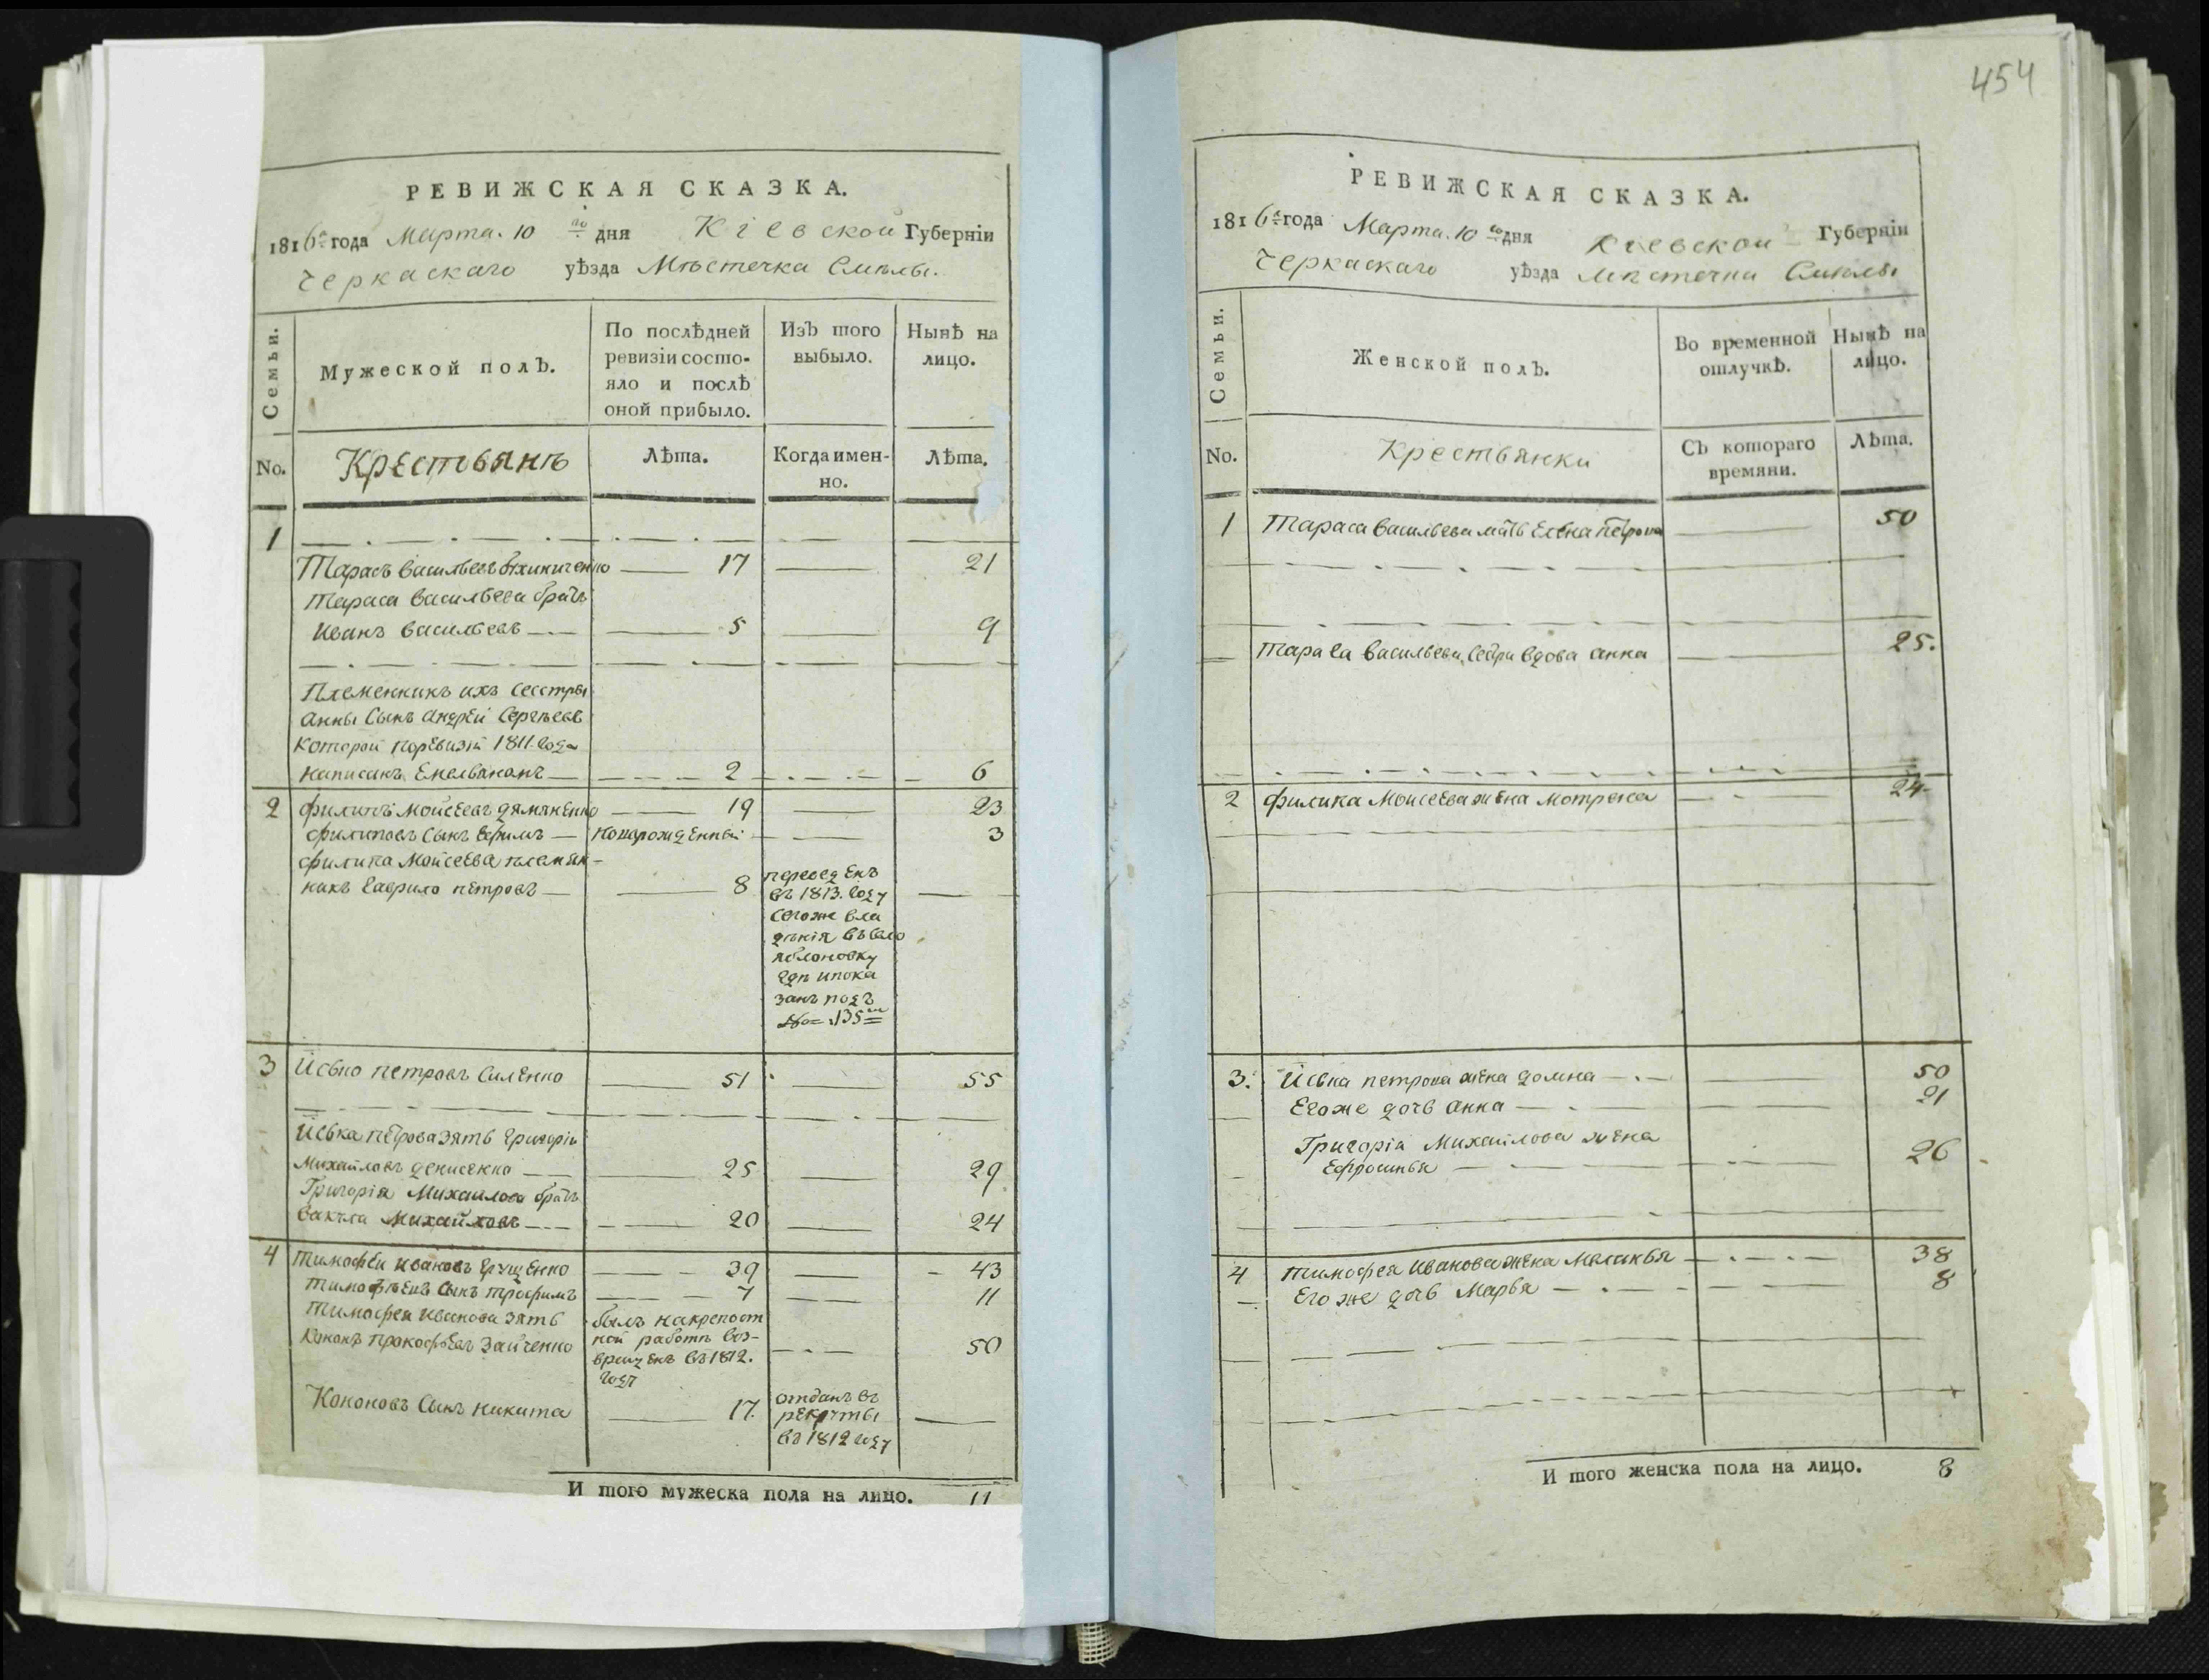 454
РЕВИЖСКАЯ СКАЗКА.
1816го года Марта. 10 го дня Кіевской Губерніи
Черкаскаго уѣзда Мѣстечка Смѣлы.
Семьи.
Мужеской полЪ.
По послѣдней
ревизіи состо-
яло и послѣ
оной прибыло.
ИзЪ того
выбыло.
Нынѣ на
лицо.
No.
Крестьянъ
Лѣта.
Когда имен-
но.
Лѣта.
1
Тарасъ Васильевъ 17 21
Тараса Васильева братъ
Иванъ Васильевъ 5 9
Племенникъ ихъ сестры
Анны Сынъ Андрей Сергѣевъ
которой поревизіи 1811. года
написанъ Емельяномъ 2 6
2 Филипъ Моисеевъ Дямяненко 19 23
Филиповъ Сынъ Ефимъ Новорожденный 3
Филипа Моисеева племян-
никъ Гаврило Петровъ 8
переведенъ
въ 1813. году
тогоже вла
дѣнія въ село
Яблоновку
гдѣ ипока
занъ подъ
No 135м
3 Йсько Петровъ Силенко 51 55
Йська Петрова зять Григорій
Михайловъ Денисенко 25 29
Григорія Михайлова братъ
Вакула Михайловъ 20 24
4 Тимофей Ивановъ Грущенко 39 43
Тимофѣевъ Сынъ Трофимъ 7 11
Тимофея Иванова зять
Кононъ Прокофьевъ Зайченко 50
былъ накрепост
ной работѣ воз-
вращенъ въ 1812.
году
Кононовъ Сынъ Никита 17.
отданъ въ
рекруты
въ 1812 году
И того мужеска пола на лицо. 11
РЕВИЖСКАЯ СКАЗКА.
1816го года Марта. 10 го дня Кіевской Губерніи
Черкаскаго уѣзда Мѣстечка Смѣлы
Семьи.
Женской полЪ.
Во временной
отлучкѣ.
Нынѣ на
лицо.
No.
Крестьянки
СЪ котораго
времяни.
Лѣта.
1 Тараса Васильева мать Елена Петрова 50
Тараса Васильева Сестра вдова Анна 25.
2 Филипа Моисеева жена Мотрена 24
3. Йська Петрова жена Домна 50
Егоже дочь Анна 21
Григорія Михайлова жена
Ефросинья 26
4 Тимофея Иванова жена Меланья 38
Его же дочь Марья 8
И того женска пола на лицо. 8